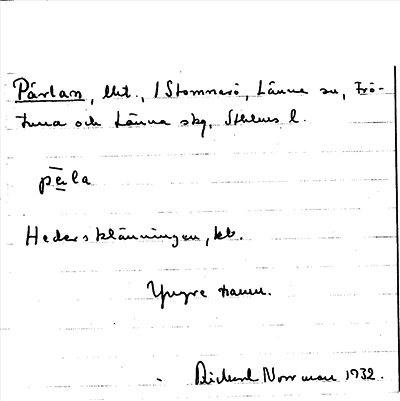 Pärlan, lht., /Stomnarö, Länna sn, Frö-
tuna och Länna skg, Sthlms l.
pęla
Hedersklänningen, kb.
Yngre namn.
Rickard Norrman 1932.